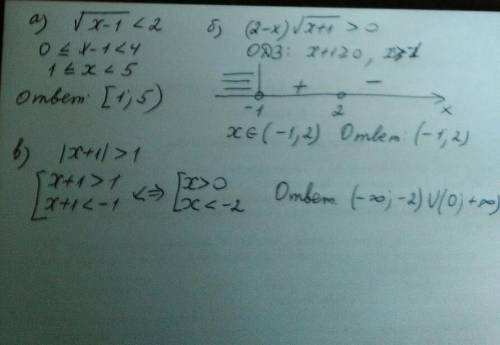 а) √(x-1) < 2
0 ≤ x-1 < 4
1 ≤ x < 5
Ответ: [1; 5)
б) (2-x)√(x+1) > 0
ОДЗ: x+1 ≥ 0,
+ -
-1 2 x
x ∈ (-1, 2) Ответ: (-1, 2)
в) |x+1| > 1
[x+1 > 1 <=> [x > 0
x+1 < -1 x < -2
Ответ (-∞; -2) U (0; +∞)